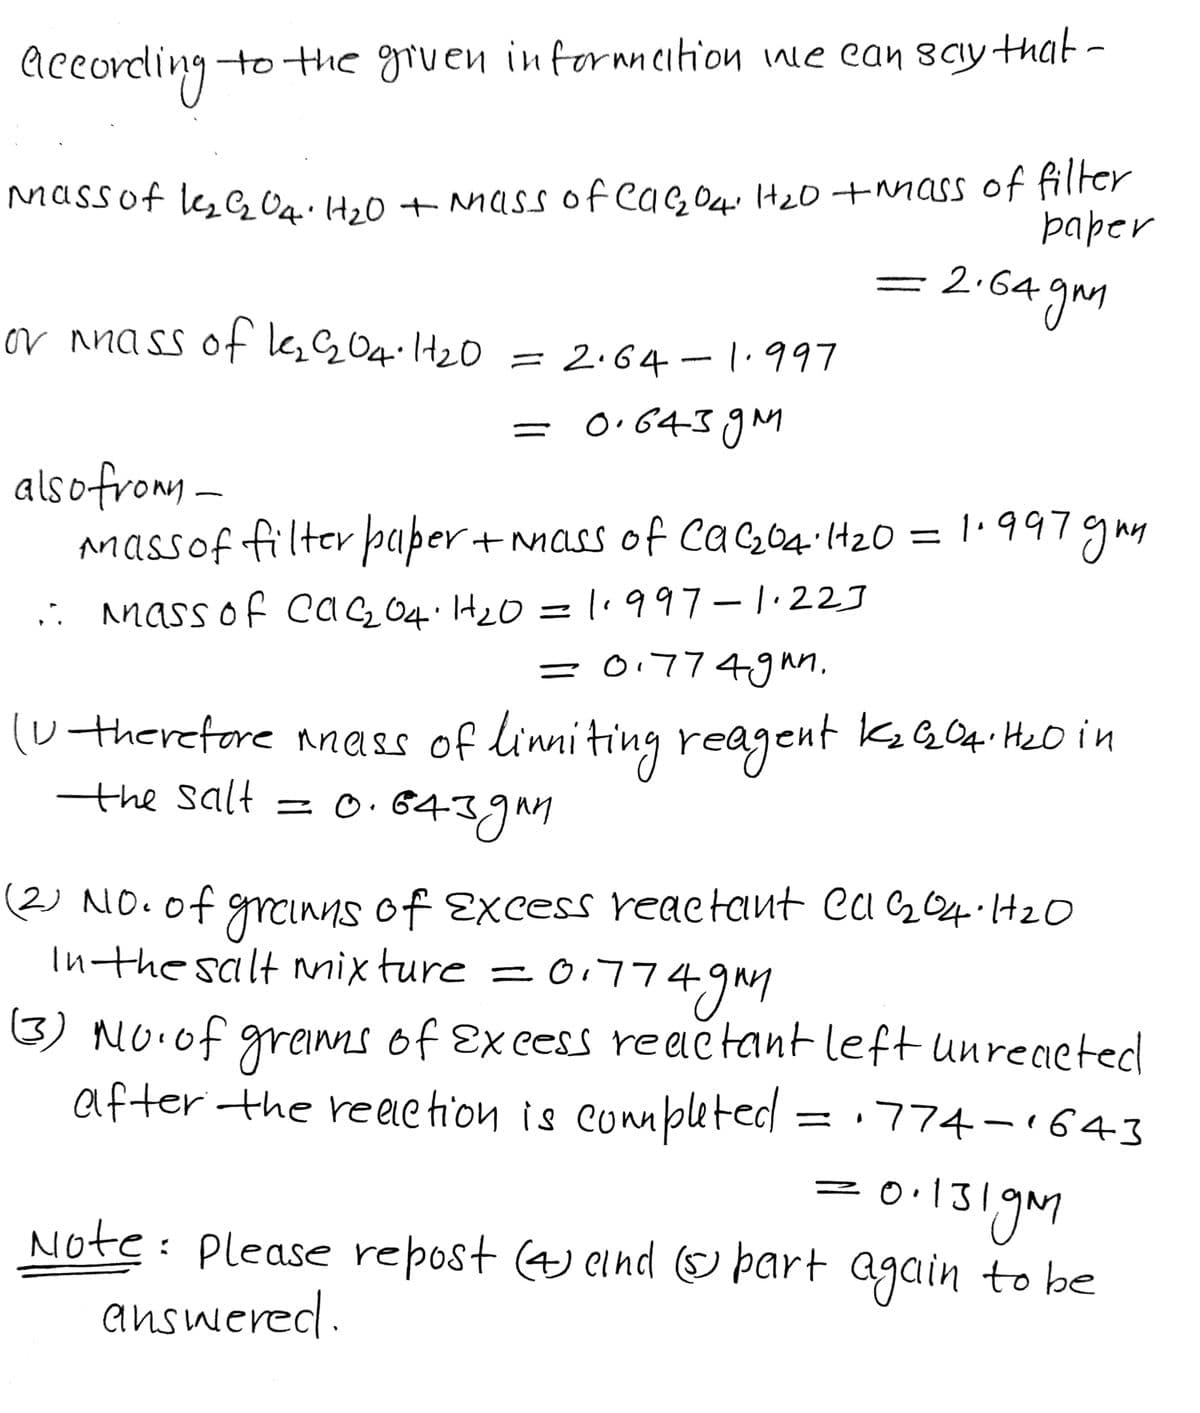 according to the given information we can say that -
mass of K₂C₂O₄·H₂O + mass of CaC₂O₄·H₂O + mass of filter
paper
= 2.64 gm
or mass of K₂C₂O₄·H₂O = 2.64 - 1.997
= 0.643 gm
also from -
mass of filter paper + mass of CaC₂O₄·H₂O = 1.997 gm
∴ mass of CaC₂O₄·H₂O = 1.997 - 1.223
= 0.774 gm.
(1) therefore mass of limiting reagent K₂C₂O₄·H₂O in
the salt = 0.643 gm
(2) NO. of grams of Excess reactant CaC₂O₄·H₂O
In the salt mixture = 0.774 gm
(3) NO. of grams of Excess reactant left unreacted
after the reaction is completed = .774 - .643
= 0.131 gm
Note : Please repost (4) and (5) part again to be
answered.